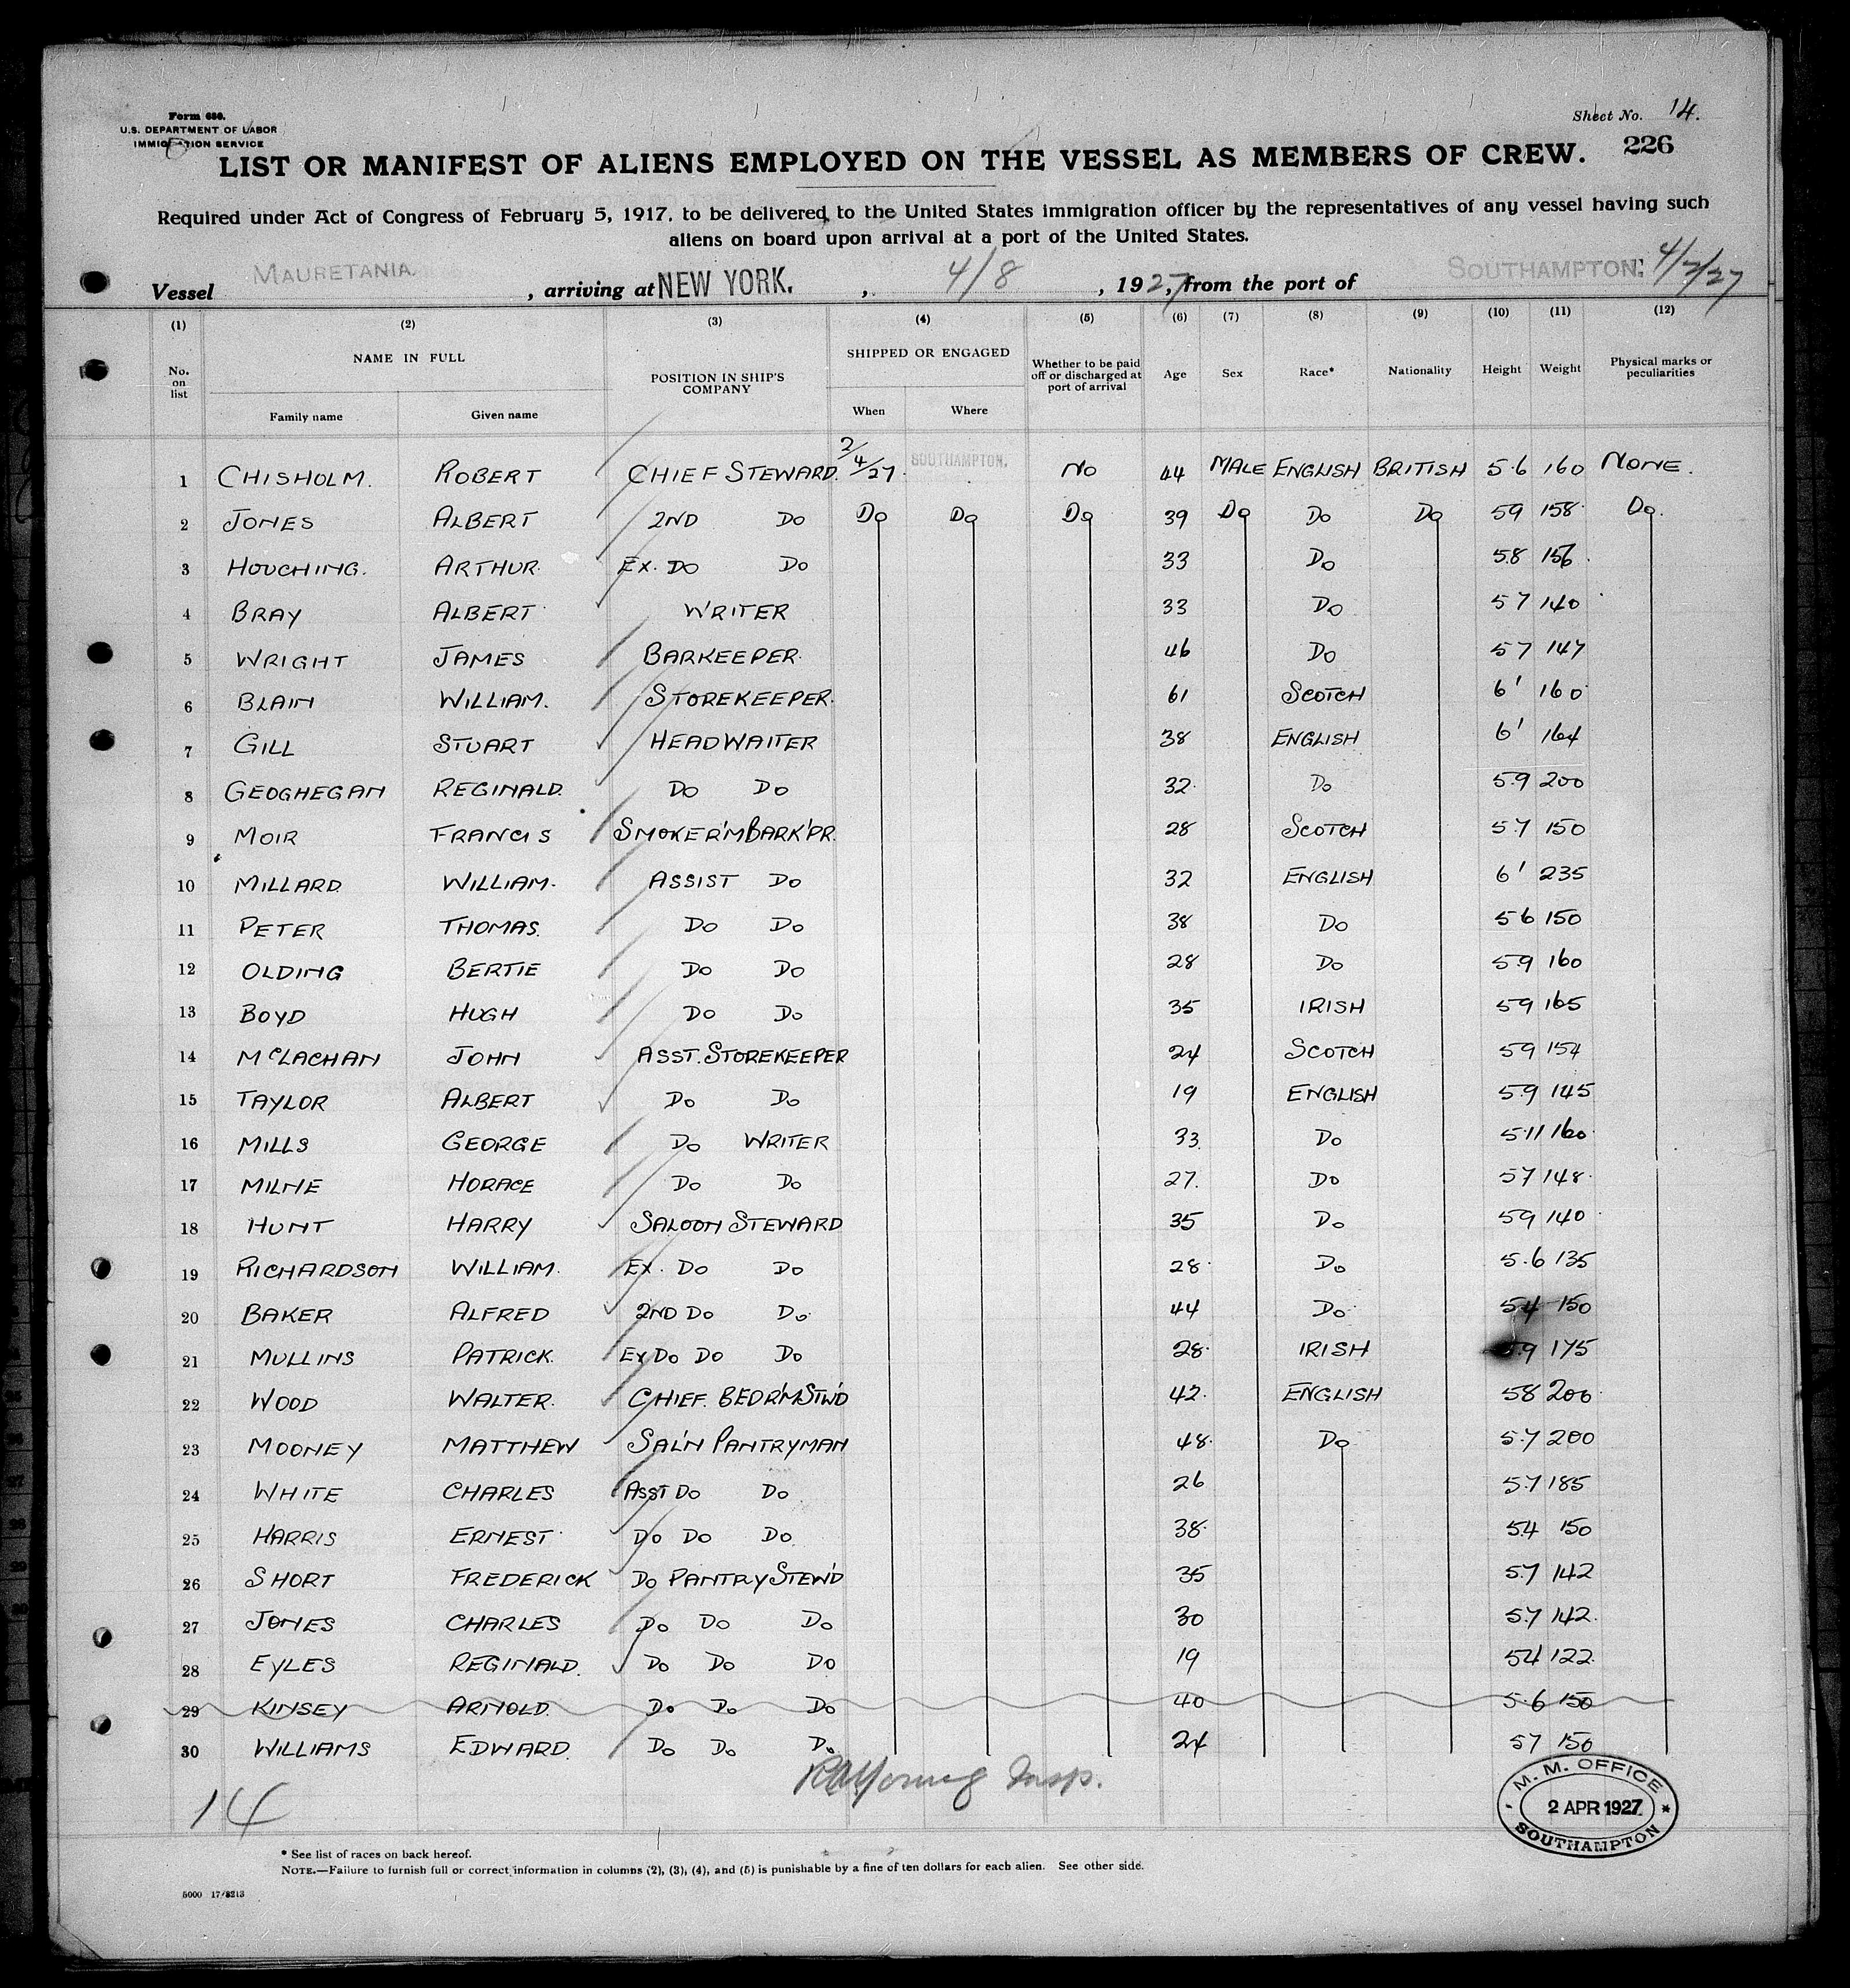 Form 680.
U.S. DEPARTMENT OF LABOR
IMMIGRATION SERVICE
Sheet No. 14.
226
LIST OR MANIFEST OF ALIENS EMPLOYED ON THE VESSEL AS MEMBERS OF CREW.
Required under Act of Congress of February 5, 1917, to be delivered to the United States immigration officer by the representatives of any vessel having such
aliens on board upon arrival at a port of the United States.
Vessel MAURETANIA. , arriving at NEW YORK. , 4/8 , 1927, from the port of SOUTHAMPTON. 4/2/27
(1) (2) (3) (4) (5) (6) (7) (8) (9) (10) (11) (12)
No. on list NAME IN FULL POSITION IN SHIP'S COMPANY SHIPPED OR ENGAGED Whether to be paid off or discharged at port of arrival Age Sex Race* Nationality Height Weight Physical marks or peculiarities
Family name Given name When Where
1 CHISHOLM. ROBERT CHIEF STEWARD. 2/4/27. SOUTHAMPTON. NO 44 MALE ENGLISH BRITISH 5.6 160 NONE.
2 JONES ALBERT 2ND DO DO DO DO 39 DO DO DO 59 158 DO.
3 HOUCHING. ARTHUR. EX. DO DO 33 DO 5.8 156
4 BRAY ALBERT WRITER 33 DO 57 140
5 WRIGHT JAMES BARKEEPER. 46 DO 57 147
6 BLAIN WILLIAM. STOREKEEPER. 61 SCOTCH 6' 160
7 GILL STUART HEADWAITER 38 ENGLISH 6' 164
8 GEOGHEGAN REGINALD. DO DO 32. DO 5.9 200
9 MOIR FRANCIS SMOKER'M BARK'PR. 28 SCOTCH 5.7 150
10 MILLARD. WILLIAM. ASSIST DO 32 ENGLISH 6' 235
11 PETER THOMAS. DO DO 38 DO 56 150
12 OLDING BERTIE DO DO 28 DO 5.9 160
13 BOYD HUGH DO DO 35 IRISH 59 165
14 MCLACHAN JOHN ASST. STOREKEEPER 24 SCOTCH 59 154
15 TAYLOR ALBERT DO DO 19 ENGLISH 5.9 145
16 MILLS GEORGE DO WRITER 33. DO 5.11 160
17 MILNE HORACE DO DO 27. DO 57 148
18 HUNT HARRY SALOON STEWARD 35 DO 59 140
19 RICHARDSON WILLIAM. EX. DO DO 28 DO 5.6 135
20 BAKER ALFRED 2ND DO DO 44 DO 54 150
21 MULLINS PATRICK. EX DO DO DO 28 IRISH 5.9 175
22 WOOD WALTER. CHIEF. BEDR'M STW'D 42. ENGLISH 58 200
23 MOONEY MATTHEW SAL'N PANTRYMAN 48. DO 5.7 200
24 WHITE CHARLES ASST DO DO 26 5.7 185
25 HARRIS ERNEST DO DO DO 38. 54 150
26 SHORT FREDERICK DO PANTRY STEW'D 35 5.7 142
27 JONES CHARLES DO DO DO 30 5.7 142.
28 EYLES REGINALD. DO DO DO 19 54 122.
29 KINSEY ARNOLD. DO DO DO 40 5.6 150
30 WILLIAMS EDWARD. DO DO DO 24 57 150
14
Insp.
M. M. OFFICE
2 APR 1927
SOUTHAMPTON
* See list of races on back hereof.
NOTE.—Failure to furnish full or correct information in columns (2), (3), (4), and (5) is punishable by a fine of ten dollars for each alien. See other side.
5000 17/8213